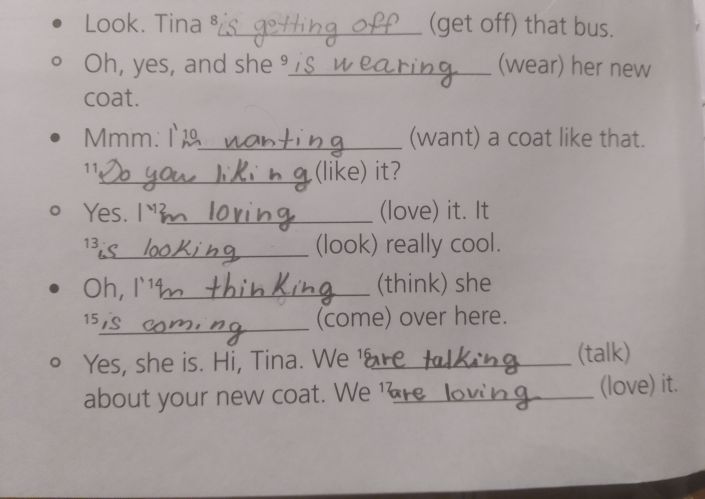 • Look. Tina ⁸is getting off (get off) that bus.
○ Oh, yes, and she ⁹is wearing (wear) her new
coat.
• Mmm. I'¹⁰m wanting (want) a coat like that.
¹¹Do you liking (like) it?
○ Yes. I'¹²m loving (love) it. It
¹³is looking (look) really cool.
• Oh, I'¹⁴m thinking (think) she
¹⁵is coming (come) over here.
○ Yes, she is. Hi, Tina. We ¹⁶are talking (talk)
about your new coat. We ¹⁷are loving (love) it.